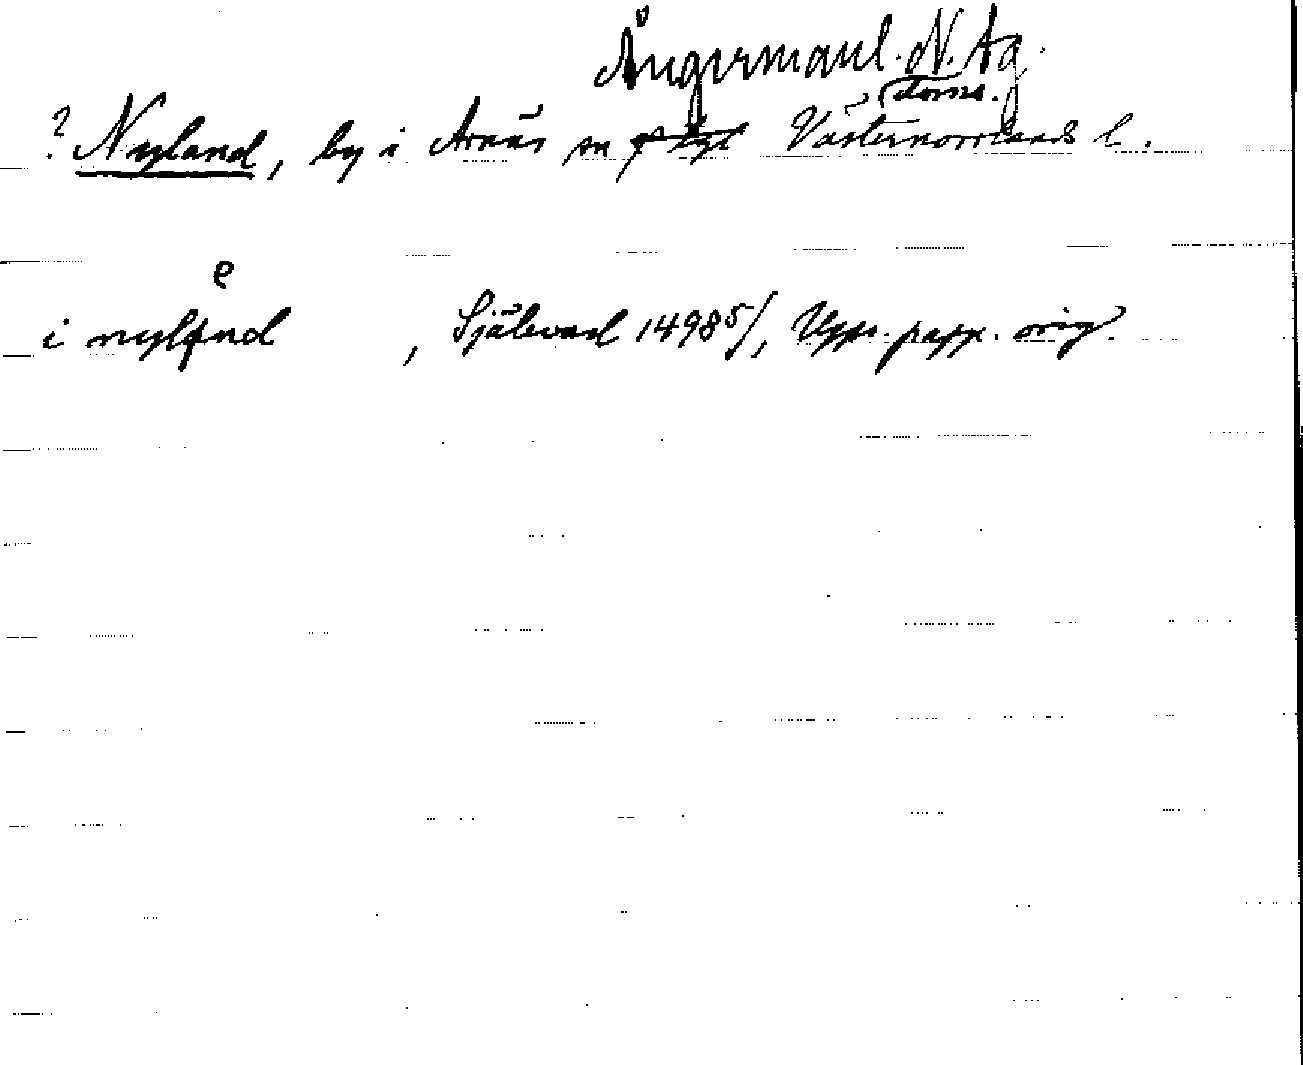 Ångermanl. N. Äg.
(doms.
? Nyland, by i Arnäs sn Västernorrlands l.
e
i nylend , Själevad 1498 5/, Upps. papp. orig.